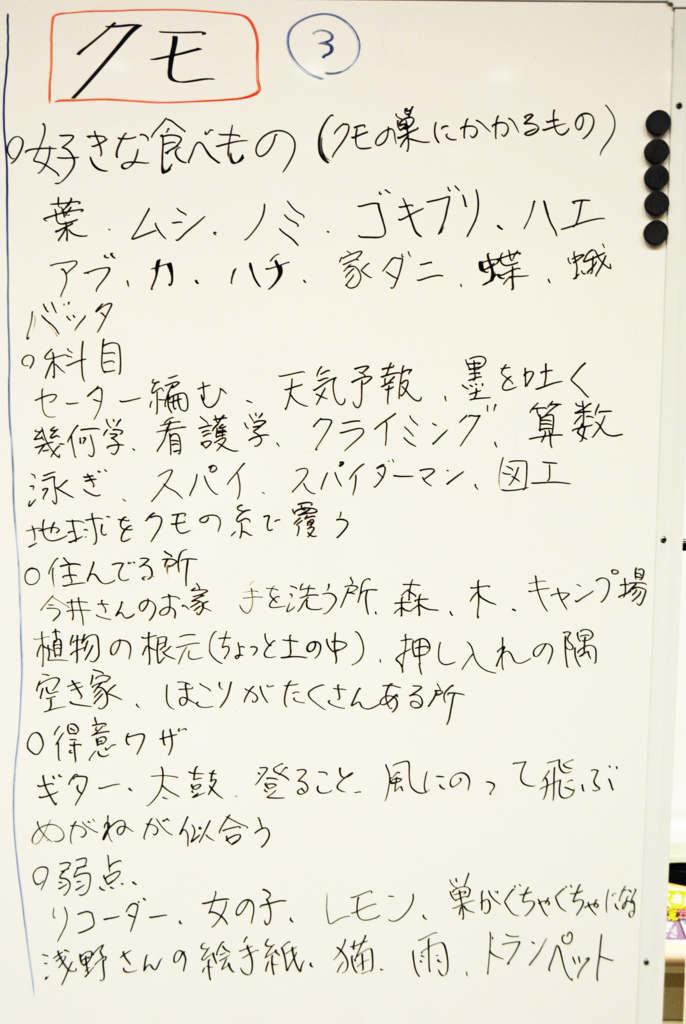 クモ ③
○好きな食べもの(クモの巣にかかるもの)
葉、ムシ、ノミ、ゴキブリ、ハエ
アブ、カ、ハチ、家ダニ、蝶、蛾
バッタ
○科目
セーター編む、天気予報、墨を吐く
幾何学、看護学、クライミング、算数
泳ぎ、スパイ、スパイダーマン、図工
地球をクモの糸で覆う
○住んでる所
今井さんのお家 手を洗う所、森、木、キャンプ場
植物の根元(ちょっと土の中)、押し入れの隅
空き家、ほこりがたくさんある所
○得意ワザ
ギター、太鼓、登ること、風にのって飛ぶ
めがねが似合う
○弱点、
リコーダー、女の子、レモン、巣がぐちゃぐちゃになる
浅野さんの絵手紙、猫、雨、トランペット